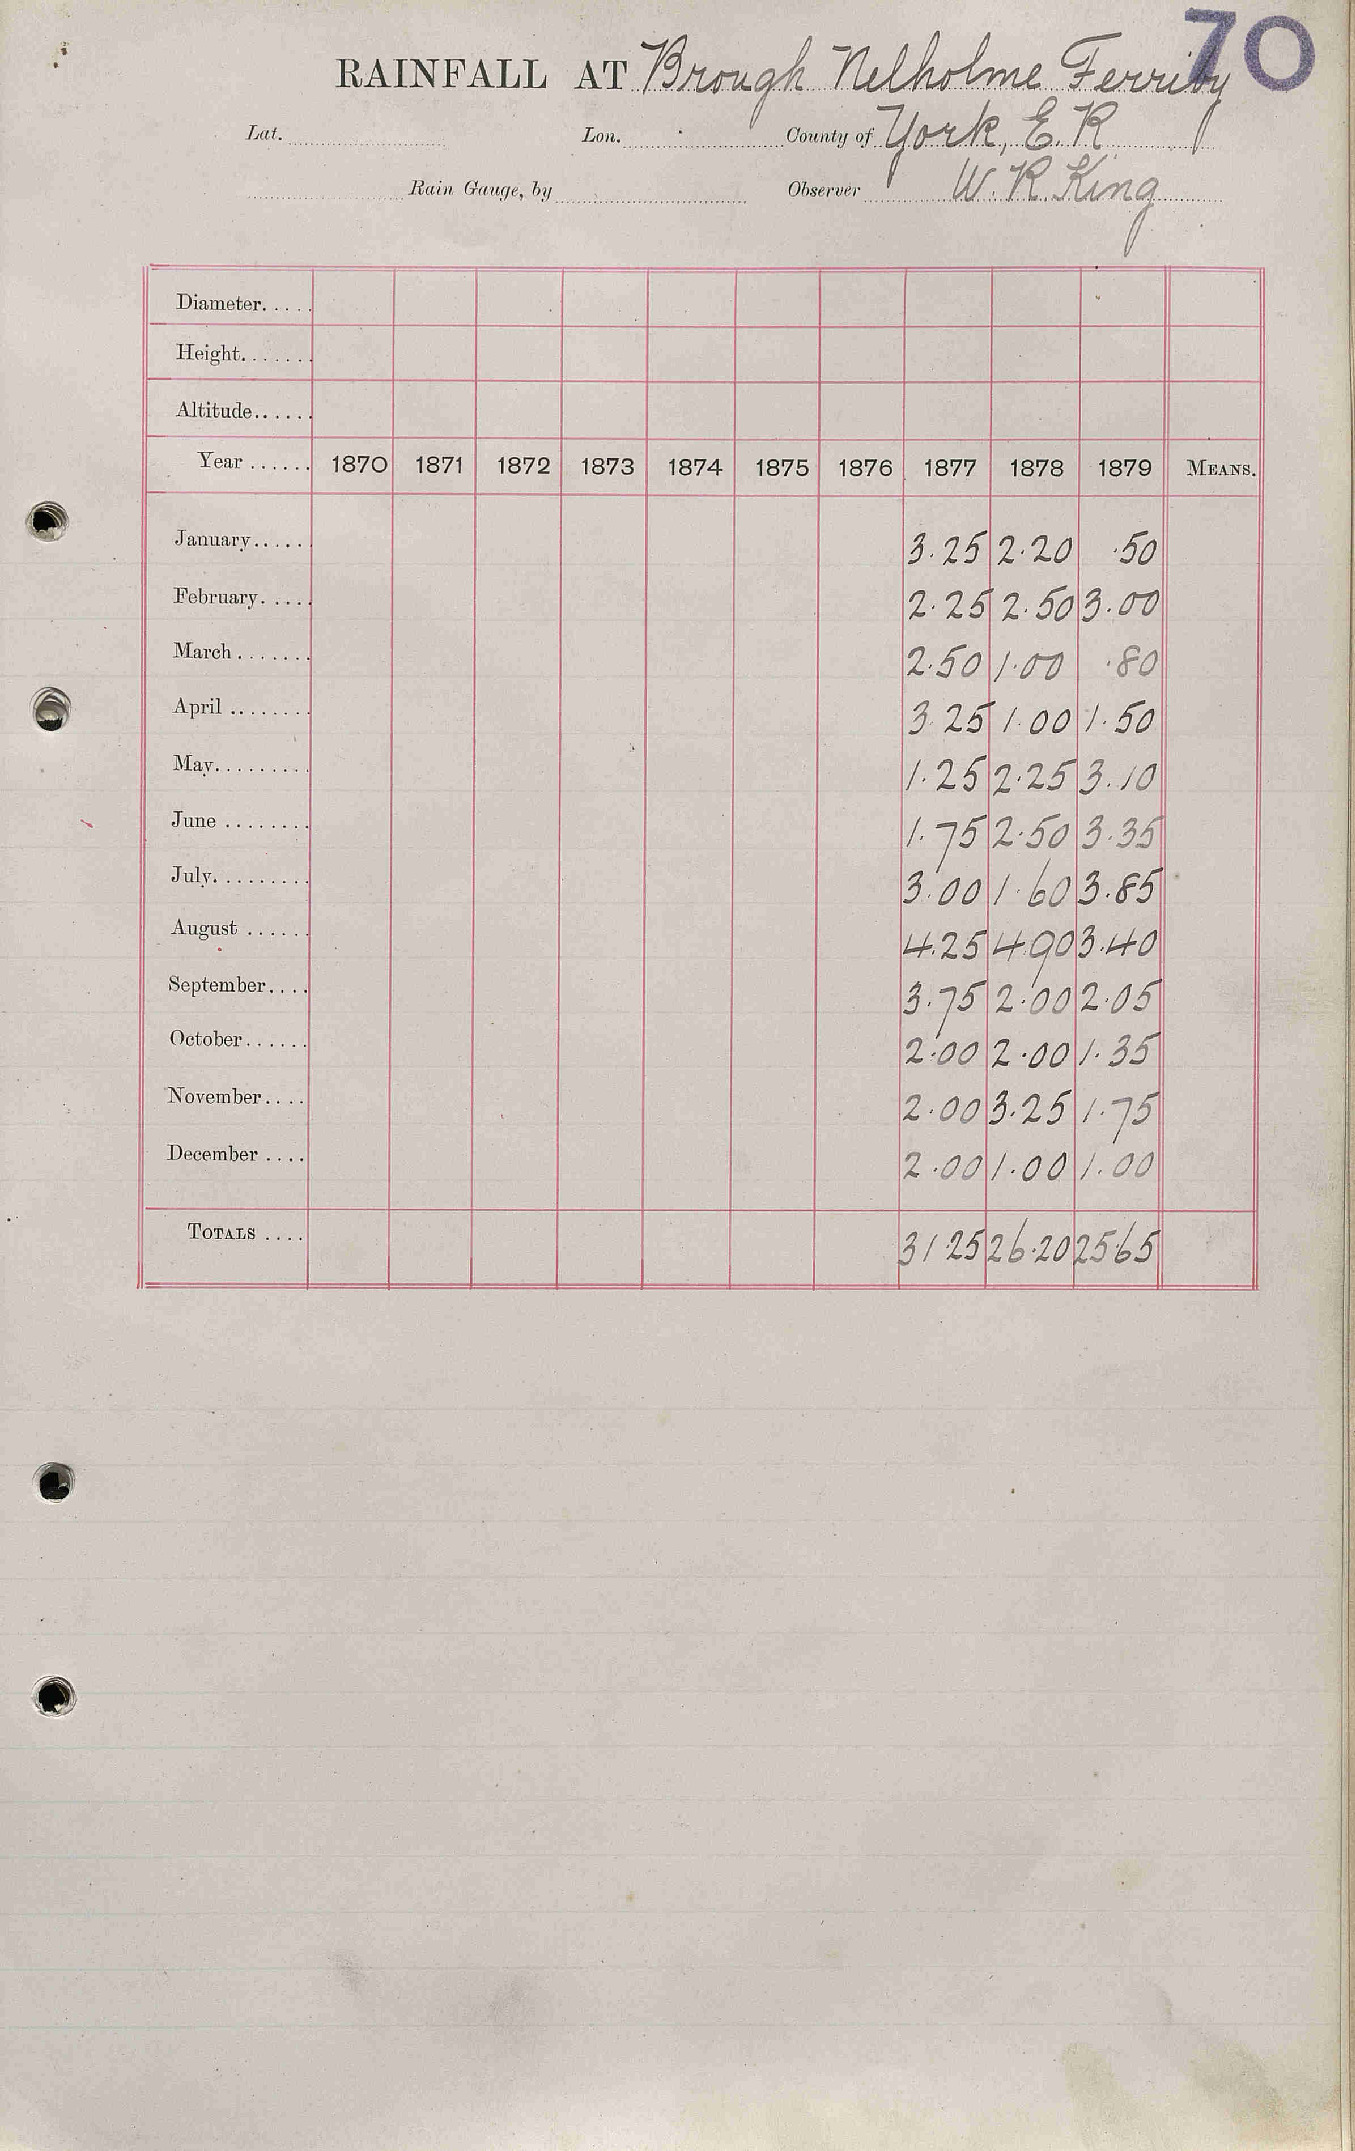 70
RAINFALL AT Brough Nelholme Ferriby
Lat. Lon. County of York, E. R
Rain Gauge, by Observer W. R. King
Diameter.....
Height.......
Altitude......
Year ...... 1870 1871 1872 1873 1874 1875 1876 1877 1878 1879 MEANS.
January...... 3.25 2.20 .50
February..... 2.25 2.50 3.00
March ....... 2.50 1.00 .80
April ........ 3.25 1.00 1.50
May......... 1.25 2.25 3.10
June ........ 1.75 2.50 3.35
July......... 3.00 1.60 3.85
August ...... 4.25 4.90 3.40
September.... 3.75 2.00 2.05
October...... 2.00 2.00 1.35
November.... 2.00 3.25 1.75
December .... 2.00 1.00 1.00
TOTALS .... 31.25 26.20 25.65